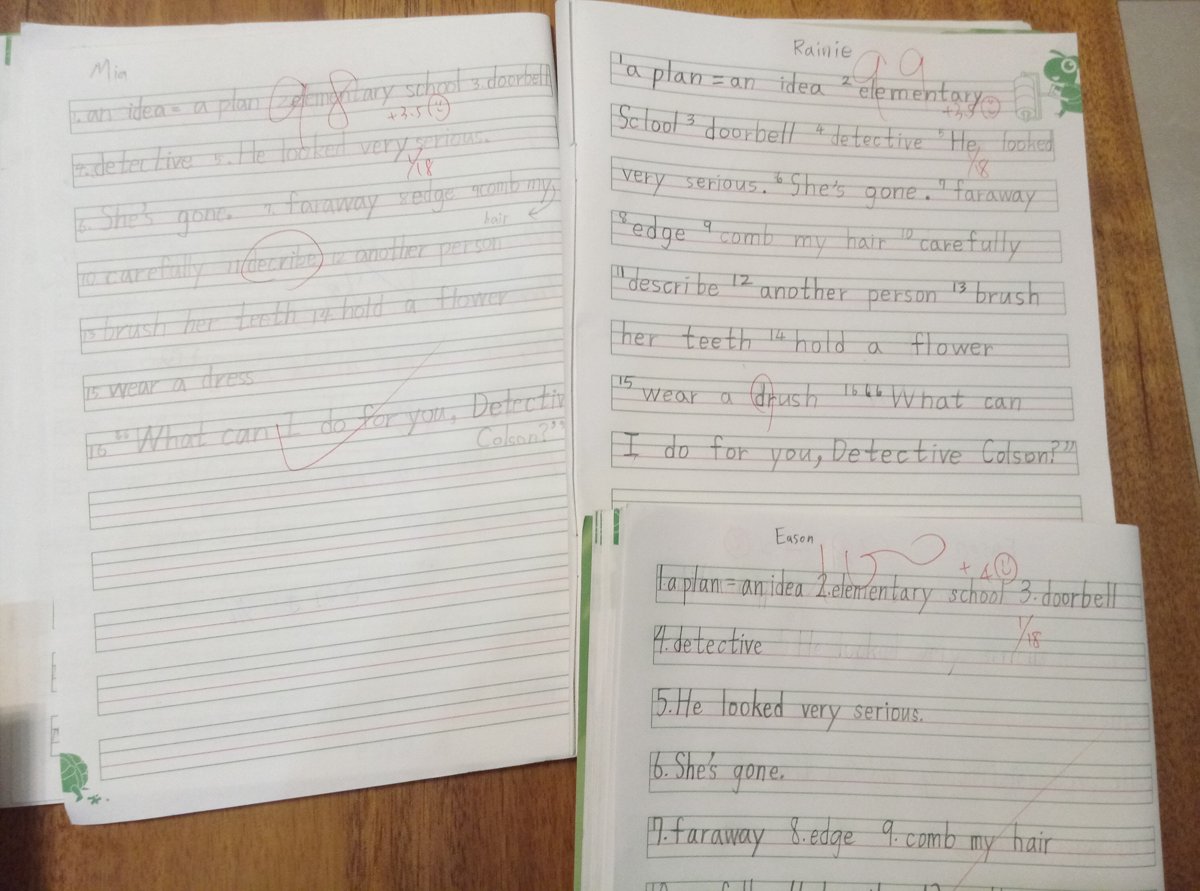 Mia
98
+3.5
1. an idea = a plan 2 elementary school 3. doorbell
1/18
4. detective 5. He looked very serious.
6. She's gone. 7. faraway 8 edge 9 comb my
hair
10 carefully 11 decribe 12 another person
13 brush her teeth 14 hold a flower
15 wear a dress
16 "What can I do for you, Detectiv
Colson?"
Rainie
99
+3.5
1 a plan = an idea 2 elementary
1/18
Sclool 3 doorbell 4 detective 5 He looked
very serious. 6 She's gone. 7 faraway
8 edge 9 comb my hair 10 carefully
11 describe 12 another person 13 brush
her teeth 14 hold a flower
15 wear a drush 16 "What can
I do for you, Detective Colson?"
Eason
+4
1. a plan = an idea 2. elementary school 3. doorbell
1/18
4. detective
5. He looked very serious.
6. She's gone.
7. faraway 8. edge 9. comb my hair